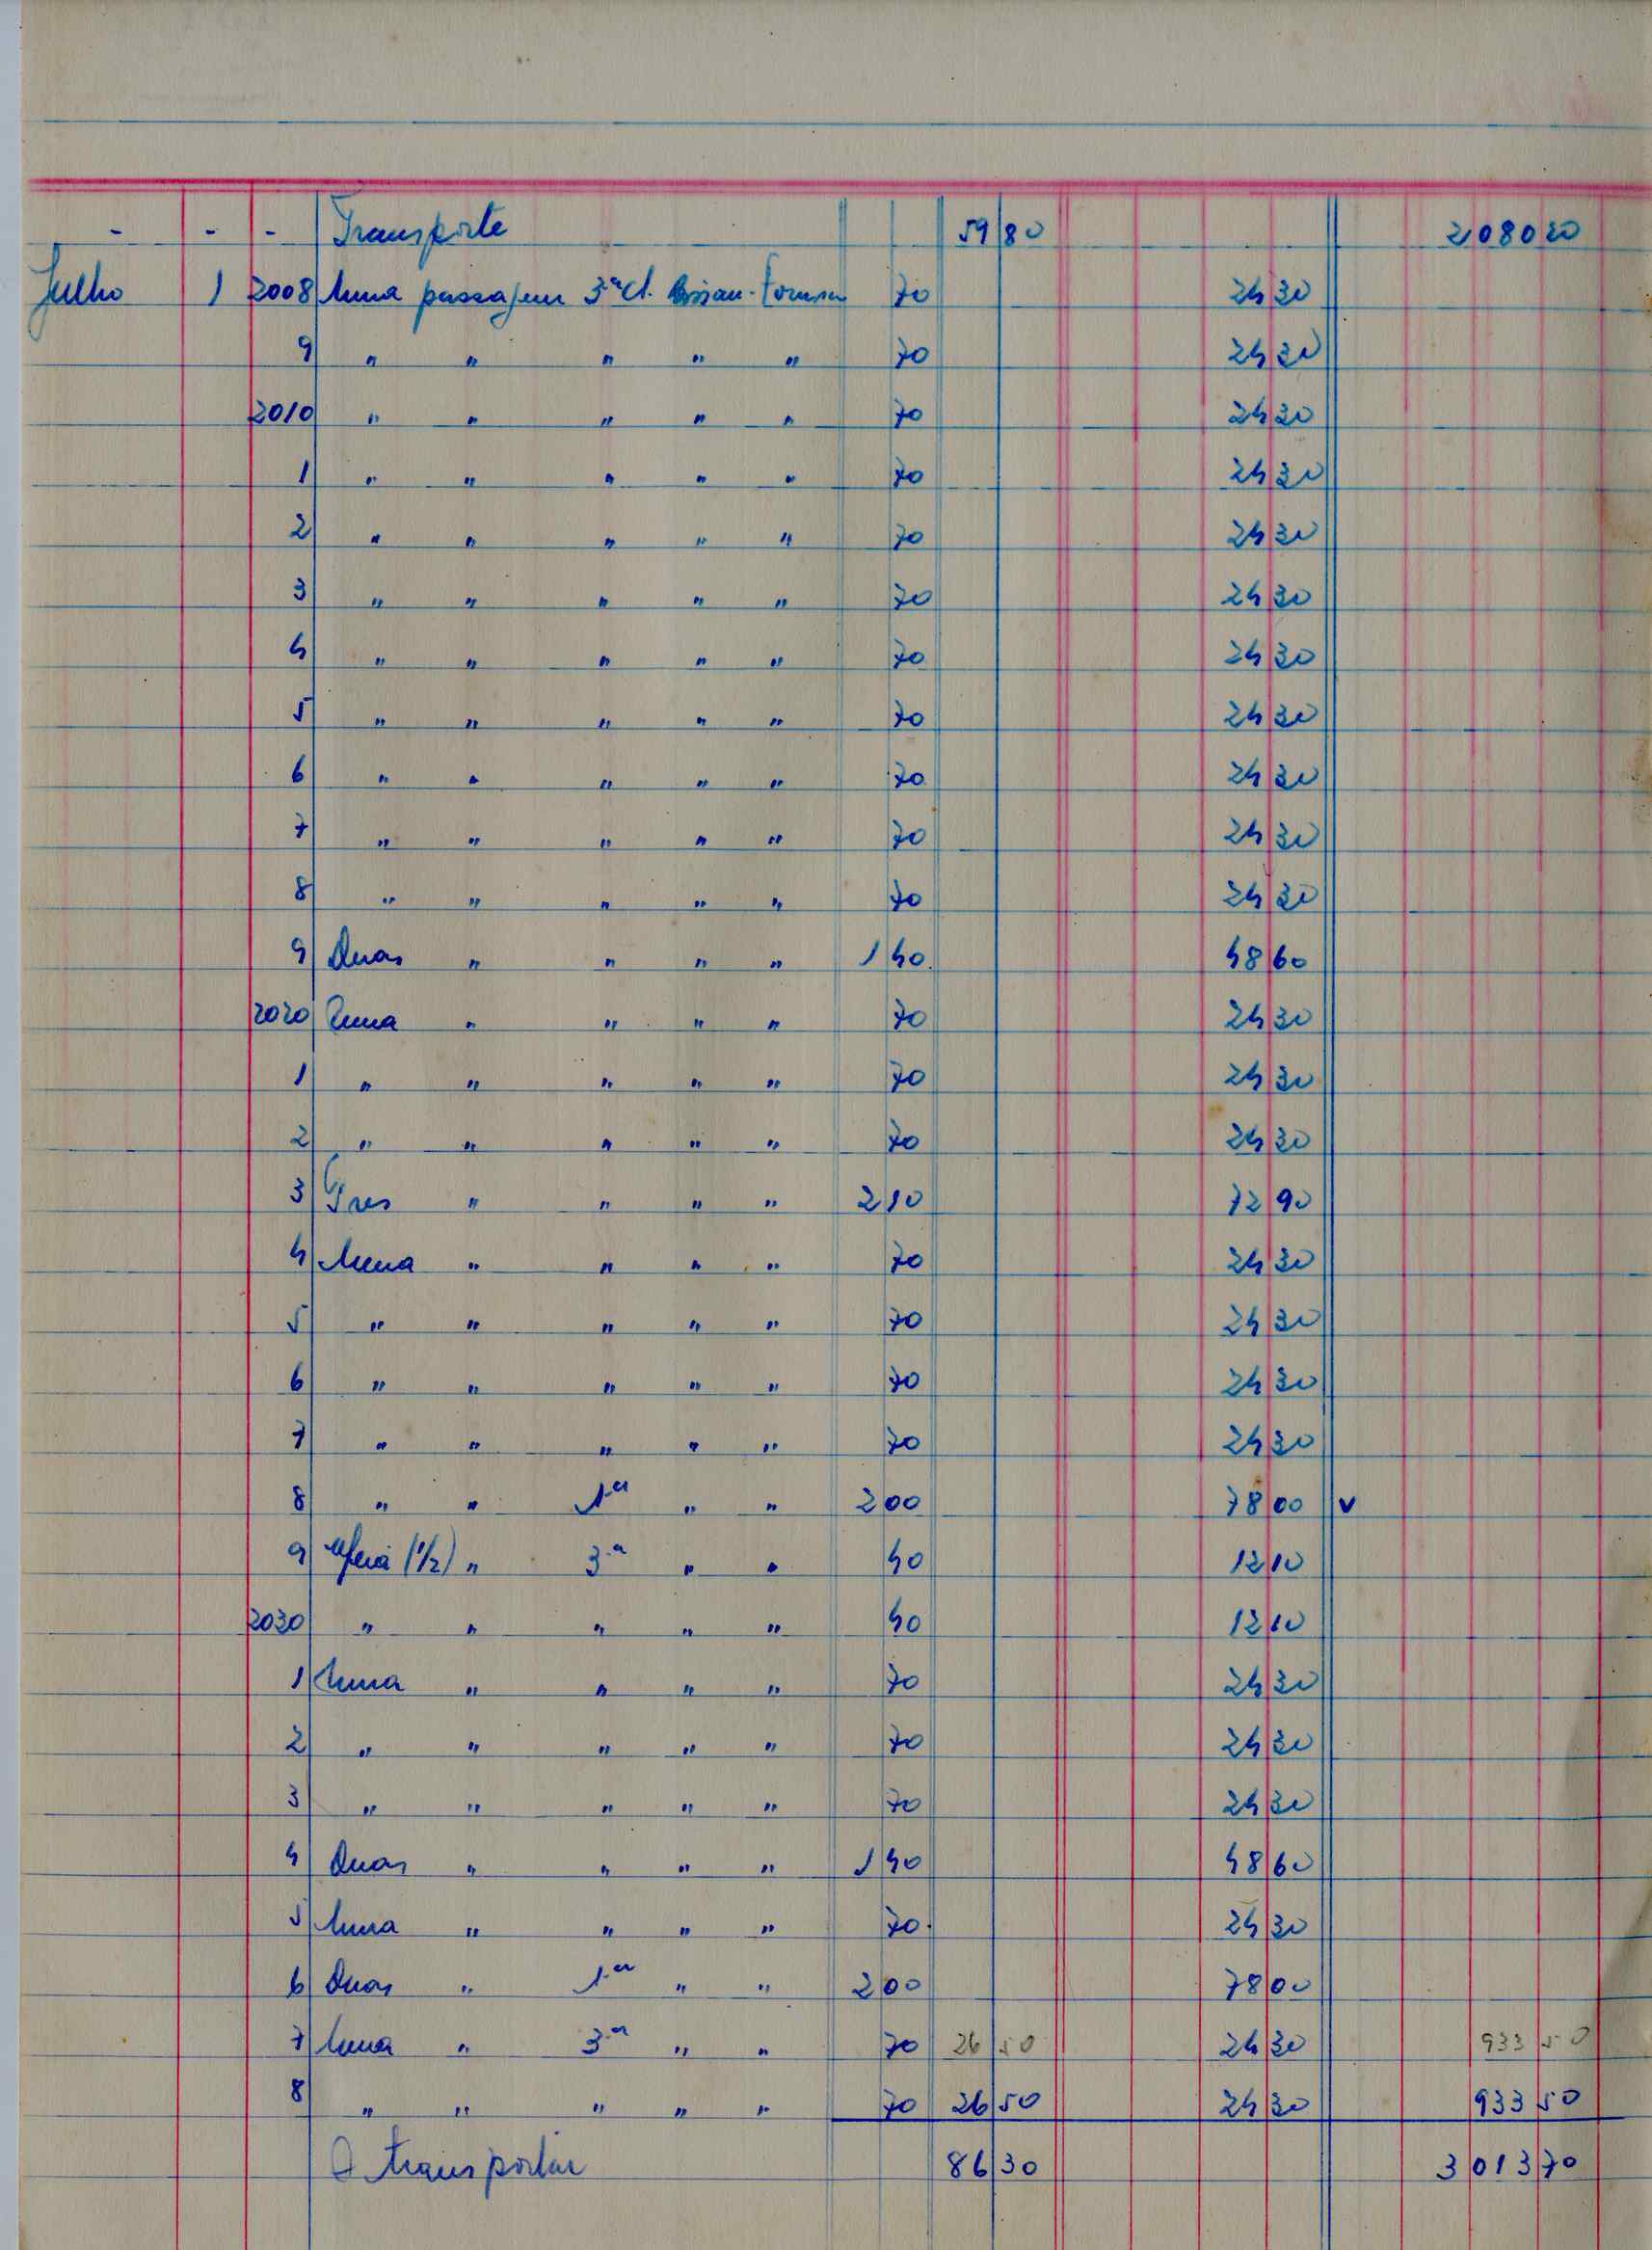 - - - Transporte 59 80 2080 20
Julho 1 2008 Uma passagem 3ª cl. Bissau- 70 24 30
9 " " " " " 70 24 30
2010 " " " " " 70 24 30
1 " " " " " 70 24 30
2 " " " " " 70 24 30
3 " " " " " 70 24 30
4 " " " " " 70 24 30
5 " " " " " 70 24 30
6 " " " " " 70 24 30
7 " " " " " 70 24 30
8 " " " " " 70 24 30
9 Duas " " " " 1 40 48 60
2020 Uma " " " " 70 24 30
1 " " " " " 70 24 30
2 " " " " " 70 24 30
3 Tres " " " " 2 10 72 90
4 Uma " " " " 70 24 30
5 " " " " " 70 24 30
6 " " " " " 70 24 30
7 " " " " " 70 24 30
8 " " 1ª " " 2 00 78 00 v
9 Meia (1/2) " 3ª " " 40 12 10
2030 " " " " " 40 12 10
1 Uma " " " " 70 24 30
2 " " " " " 70 24 30
3 " " " " " 70 24 30
4 Duas " " " " 1 40 48 60
5 Uma " " " " 70 24 30
6 Duas " 1ª " " 2 00 78 00
7 Uma " 3ª " " 70 26 50 24 30 933 50
8 " " " " " 70 26 50 24 30 933 50
A transportar 86 30 3013 70